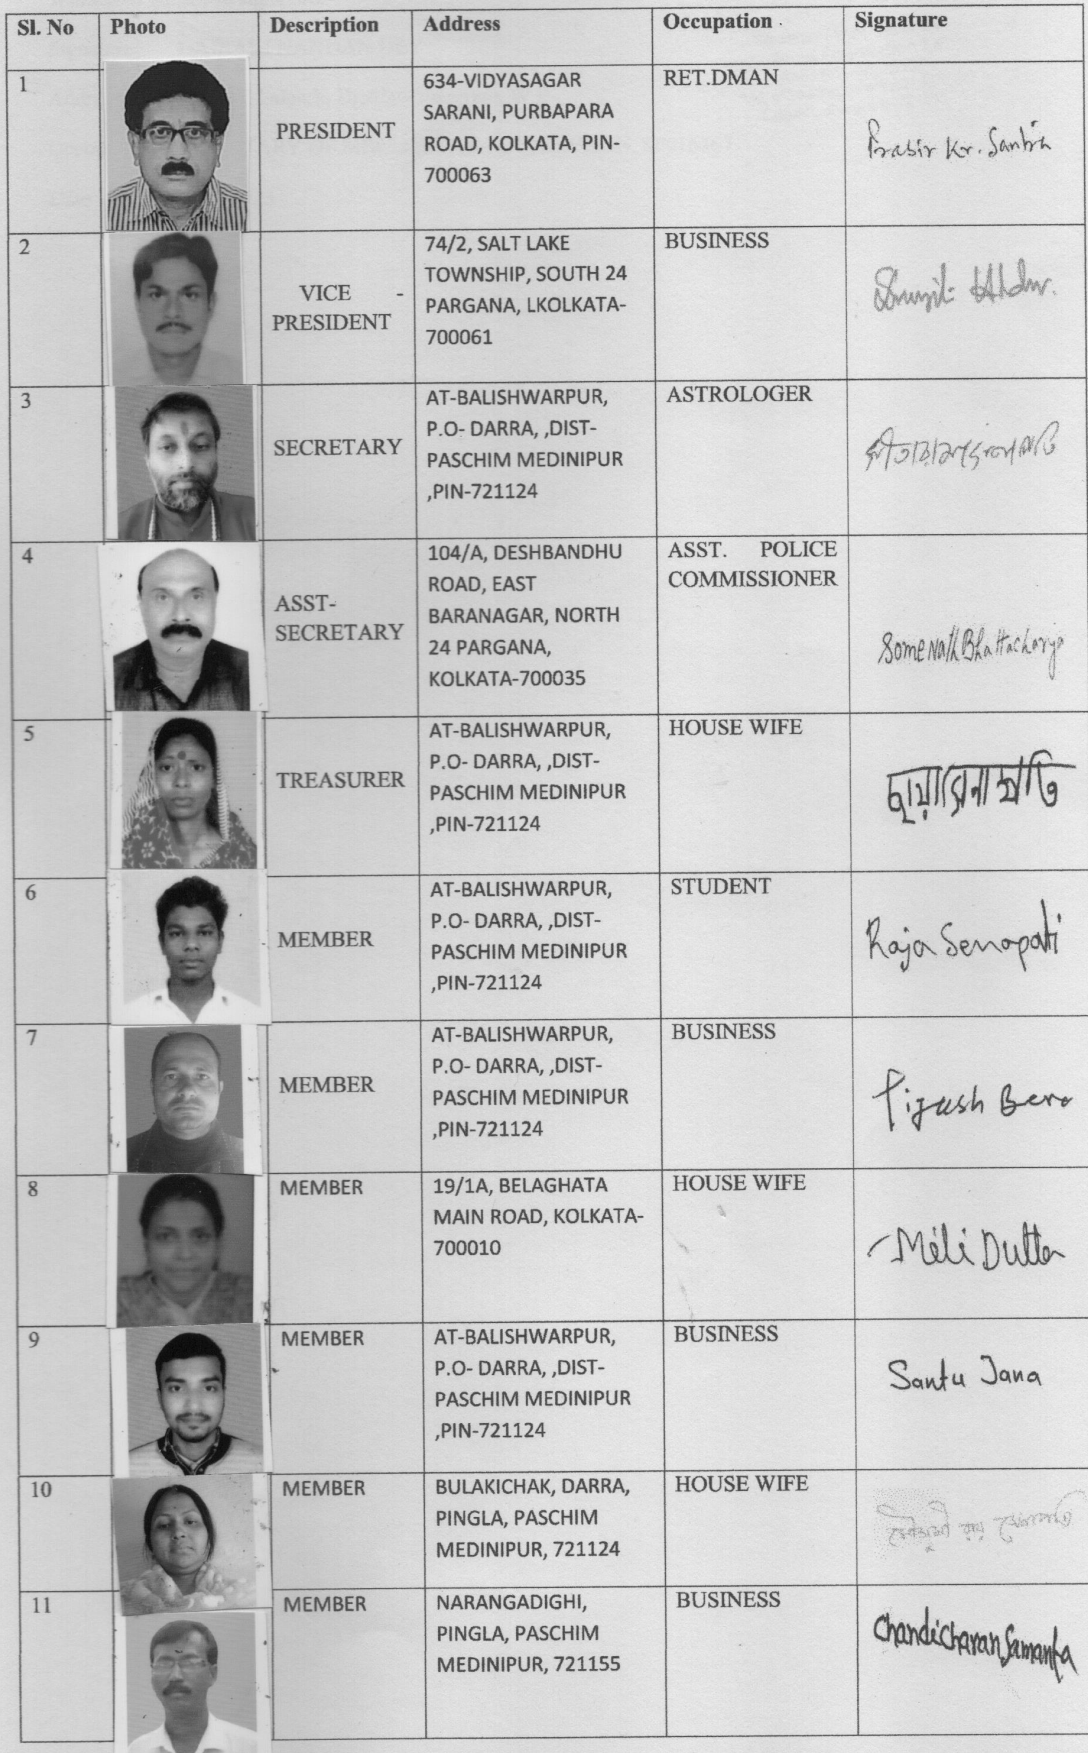 Sl. No Photo Description Address Occupation Signature
1
PRESIDENT
634-VIDYASAGAR
SARANI, PURBAPARA
ROAD, KOLKATA, PIN-
700063
RET.DMAN
Prabir Kr. Santra
2
VICE -
PRESIDENT
74/2, SALT LAKE
TOWNSHIP, SOUTH 24
PARGANA, LKOLKATA-
700061
BUSINESS
3
SECRETARY
AT-BALISHWARPUR,
P.O- DARRA, ,DIST-
PASCHIM MEDINIPUR
,PIN-721124
ASTROLOGER
4
ASST-
SECRETARY
104/A, DESHBANDHU
ROAD, EAST
BARANAGAR, NORTH
24 PARGANA,
KOLKATA-700035
ASST. POLICE
COMMISSIONER
Somenath Bhattacharya
5
TREASURER
AT-BALISHWARPUR,
P.O- DARRA, ,DIST-
PASCHIM MEDINIPUR
,PIN-721124
HOUSE WIFE
ছায়া সেনাপতি
6
MEMBER
AT-BALISHWARPUR,
P.O- DARRA, ,DIST-
PASCHIM MEDINIPUR
,PIN-721124
STUDENT
Raja Senapati
7
MEMBER
AT-BALISHWARPUR,
P.O- DARRA, ,DIST-
PASCHIM MEDINIPUR
,PIN-721124
BUSINESS
Pijush Bera
8
MEMBER
19/1A, BELAGHATA
MAIN ROAD, KOLKATA-
700010
HOUSE WIFE
Mili Dutta
9
MEMBER
AT-BALISHWARPUR,
P.O- DARRA, ,DIST-
PASCHIM MEDINIPUR
,PIN-721124
BUSINESS
Santu Jana
10
MEMBER
BULAKICHAK, DARRA,
PINGLA, PASCHIM
MEDINIPUR, 721124
HOUSE WIFE
11
MEMBER
NARANGADIGHI,
PINGLA, PASCHIM
MEDINIPUR, 721155
BUSINESS
Chandicharan Samanta